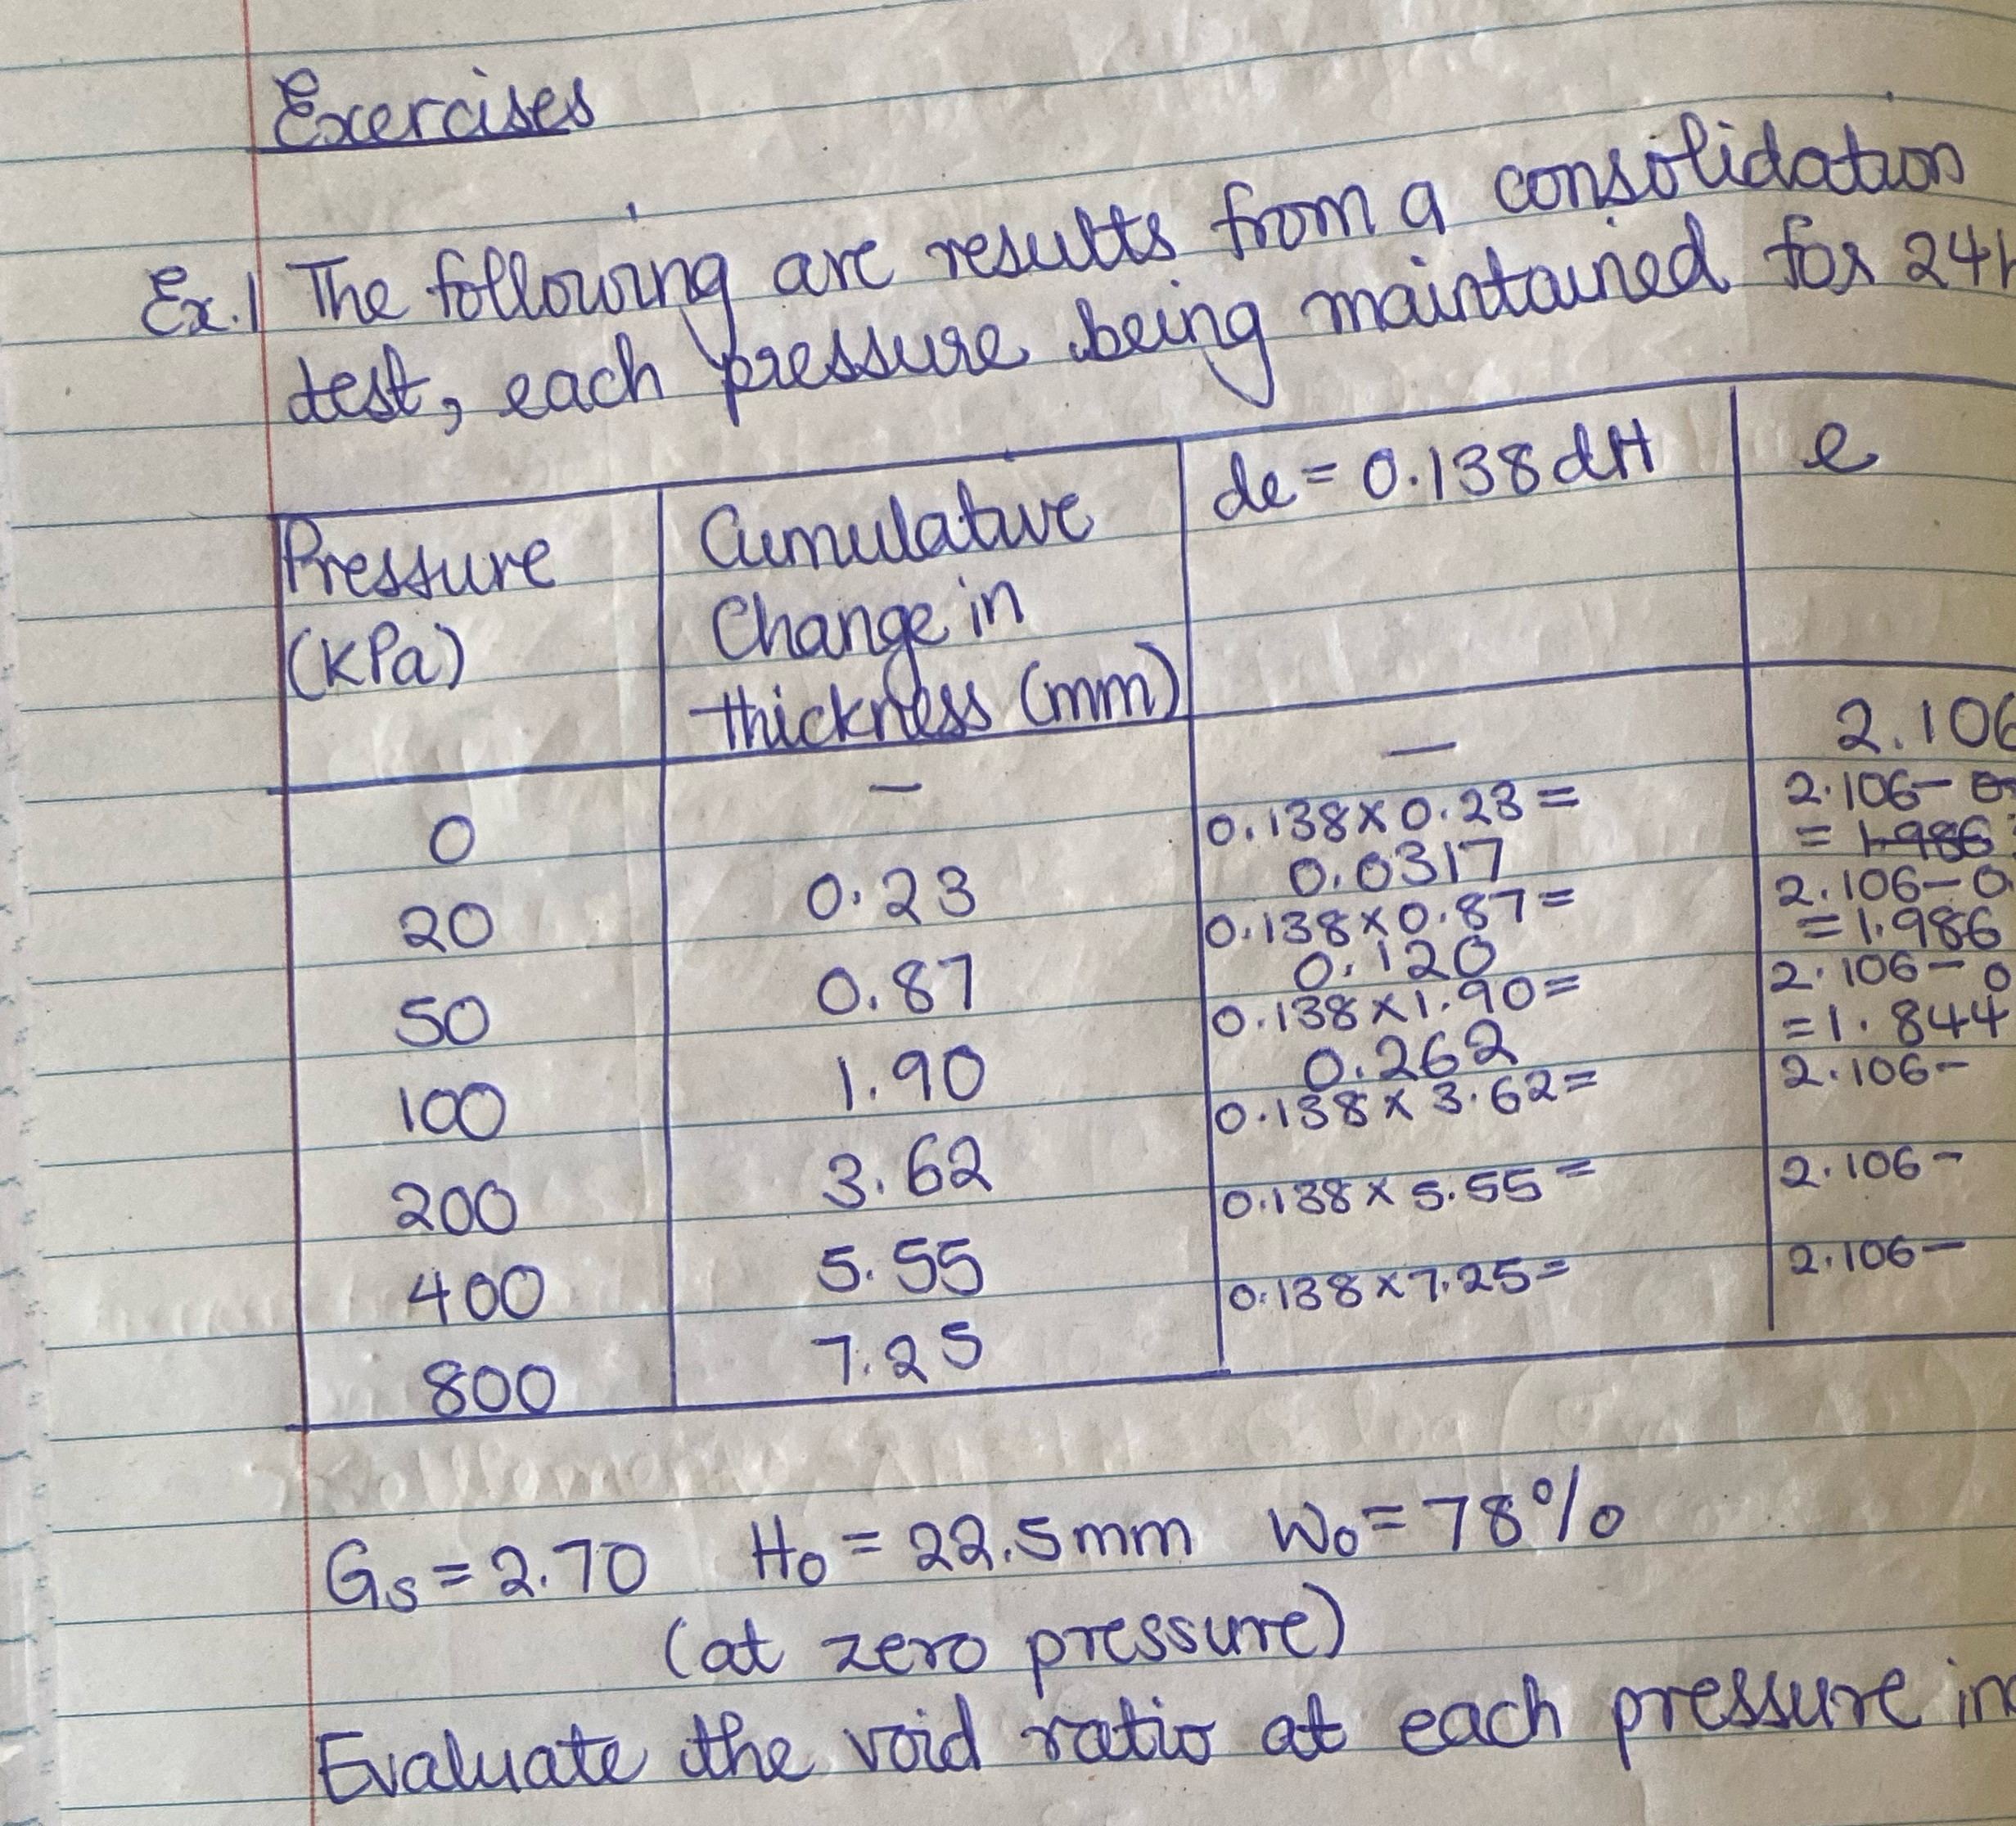 Exercises
Ex.1 The following are results from a consolidation
test, each pressure being maintained for 24h
Pressure (kPa) | Cumulative Change in thickness (mm) | de = 0.138dH | e
0 | – | — | 2.106
20 | 0.23 | 0.138 x 0.23 = 0.0317 | 2.106 – = 1.986
50 | 0.87 | 0.138 x 0.87 = 0.120 | 2.106 – 0. = 1.986
100 | 1.90 | 0.138 x 1.90 = 0.262 | 2.106 – 0 = 1.844
200 | 3.62 | 0.138 x 3.62 = | 2.106 –
400 | 5.55 | 0.138 x 5.55 = | 2.106 –
800 | 7.25 | 0.138 x 7.25 = | 2.106 –
Gs = 2.70 Ho = 22.5mm Wo = 78%
(at zero pressure)
Evaluate the void ratio at each pressure